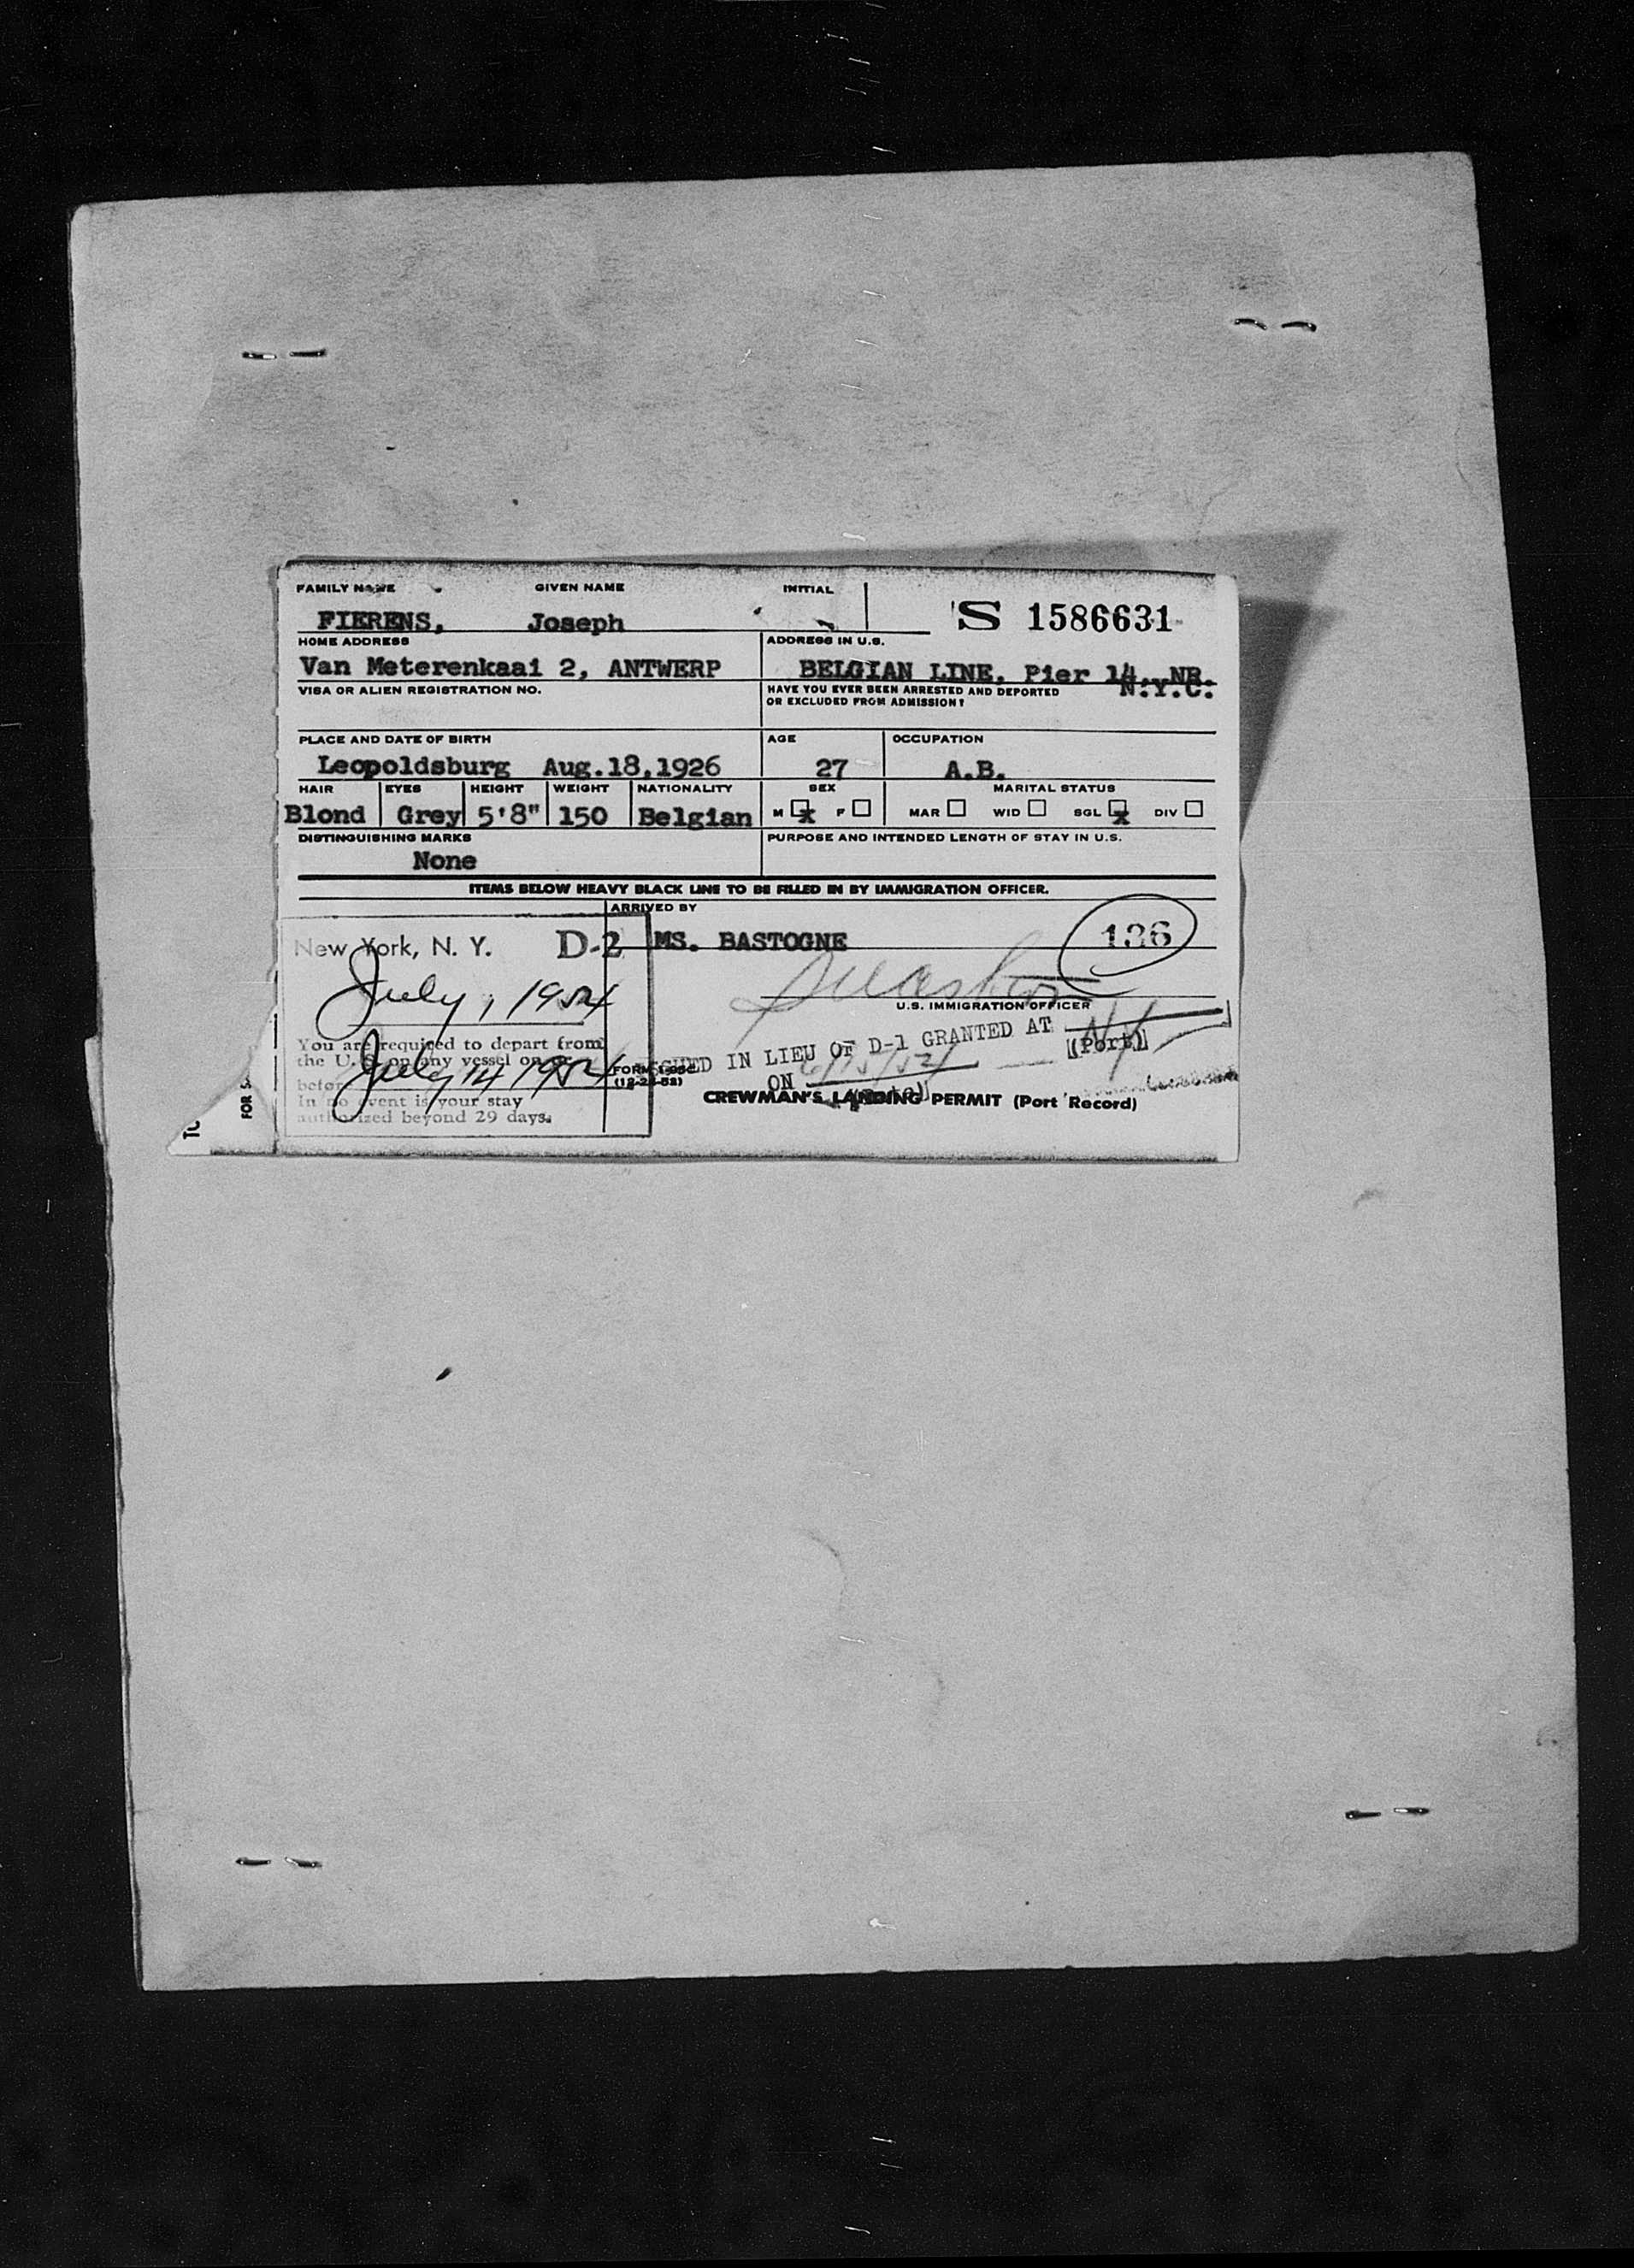 FAMILY NAME GIVEN NAME INITIAL
FIERENS, Joseph
S 1586631
HOME ADDRESS ADDRESS IN U.S.
Van Meterenkaai 2, ANTWERP BELGIAN LINE, Pier 14, NR.
N.Y.C.
VISA OR ALIEN REGISTRATION NO. HAVE YOU EVER BEEN ARRESTED AND DEPORTED
OR EXCLUDED FROM ADMISSION?
PLACE AND DATE OF BIRTH AGE OCCUPATION
Leopoldsburg Aug.18,1926 27 A.B.
HAIR EYES HEIGHT WEIGHT NATIONALITY SEX MARITAL STATUS
Blond Grey 5'8" 150 Belgian M x F MAR WID SGL x DIV
DISTINGUISHING MARKS PURPOSE AND INTENDED LENGTH OF STAY IN U.S.
None
ITEMS BELOW HEAVY BLACK LINE TO BE FILLED IN BY IMMIGRATION OFFICER.
ARRIVED BY
New York, N. Y. D-2 MS. BASTOGNE 136
July 1, 1954
U.S. IMMIGRATION OFFICER
You are required to depart from
the U.S. on any vessel on or
before July 14 1954
In no event is your stay
authorized beyond 29 days.
IN LIEU OF D-1 GRANTED AT N.Y.
(Port)
ON
FORM I-95C
(12-24-52)
CREWMAN'S LANDING PERMIT (Port Record)
FOR